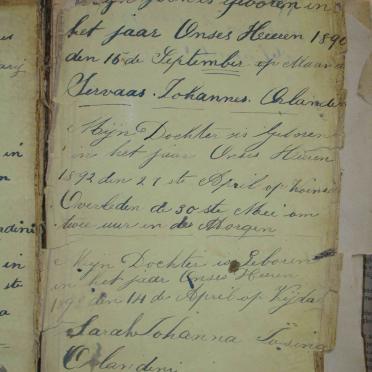 Mijn zoon is geboren in
het jaar Onses Heeren 1890
den 15 de September op Maan
Servaas Johannes Orlandini
Mijn Dochter is Geboren
in het jaar Onses Heeren
1892 den 21 ste April op
Overleden de 30 ste Mei om
twee uur in de Morgen
Mijn Dochter is Geboren
in het jaar Onses Heeren
den 14 de April op Vrijdag
Sarah Johanna
Orlandini